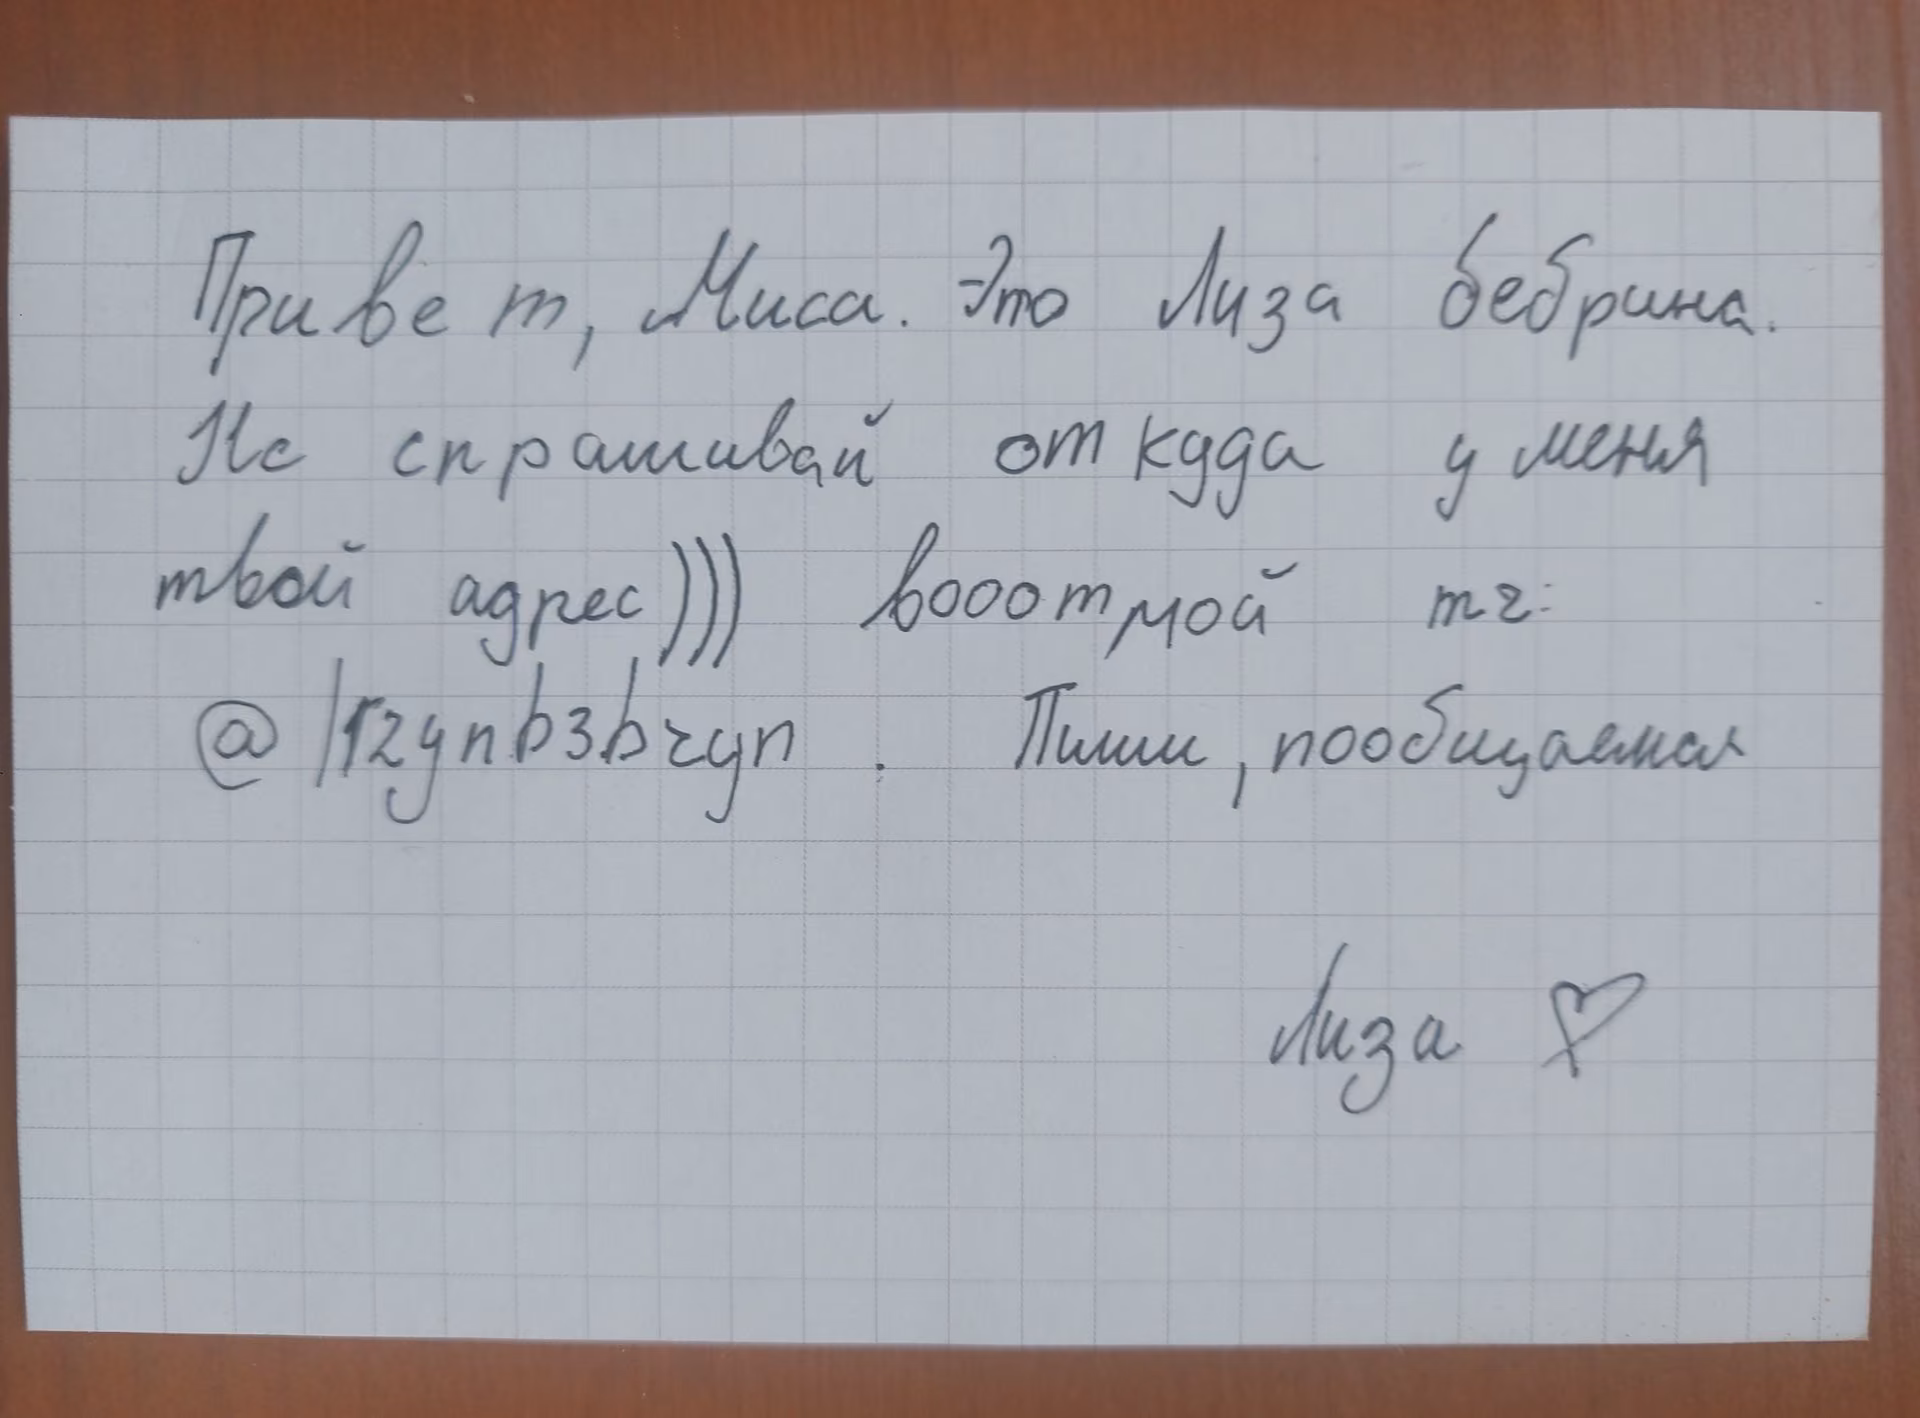 Привет, Миса. Это Лиза бебрина.
Не спрашивай откуда у меня
твой адрес))) вооот мой тг:
@lrzynb3brzyn . Пиши, пообщаемся
Лиза ♡